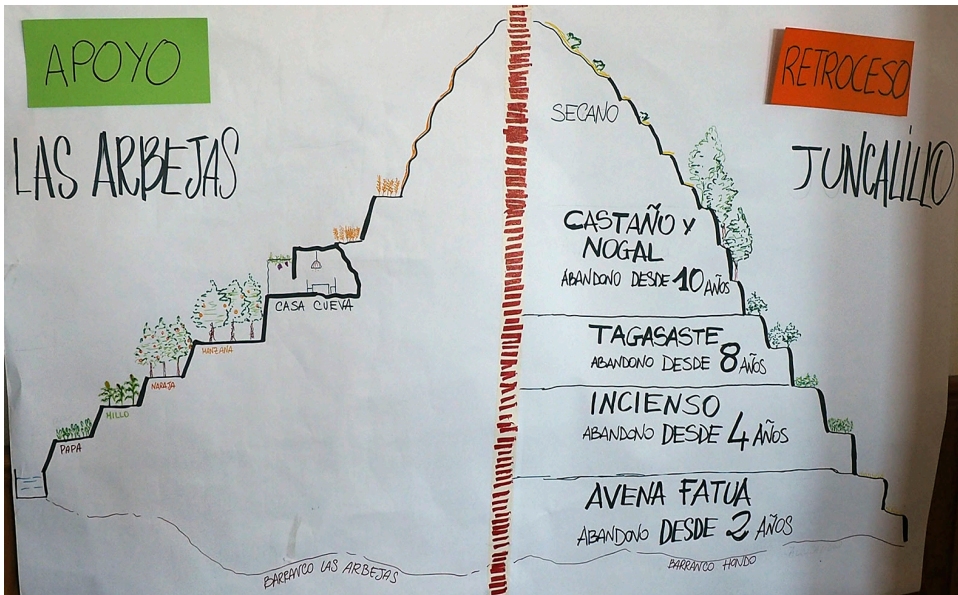 APOYO
LAS ARBEJAS
CASA CUEVA
MANZANA
NARAJA
MILLO
PAPA
BARRANCO LAS ARBEJAS
RETROCESO
JUNCALILLO
SECANO
CASTAÑO Y
NOGAL
ABANDONO DESDE 10 AÑOS
TAGASASTE
ABANDONO DESDE 8 AÑOS
INCIENSO
ABANDONO DESDE 4 AÑOS
AVENA FATUA
ABANDONO DESDE 2 AÑOS
BARRANCO HONDO